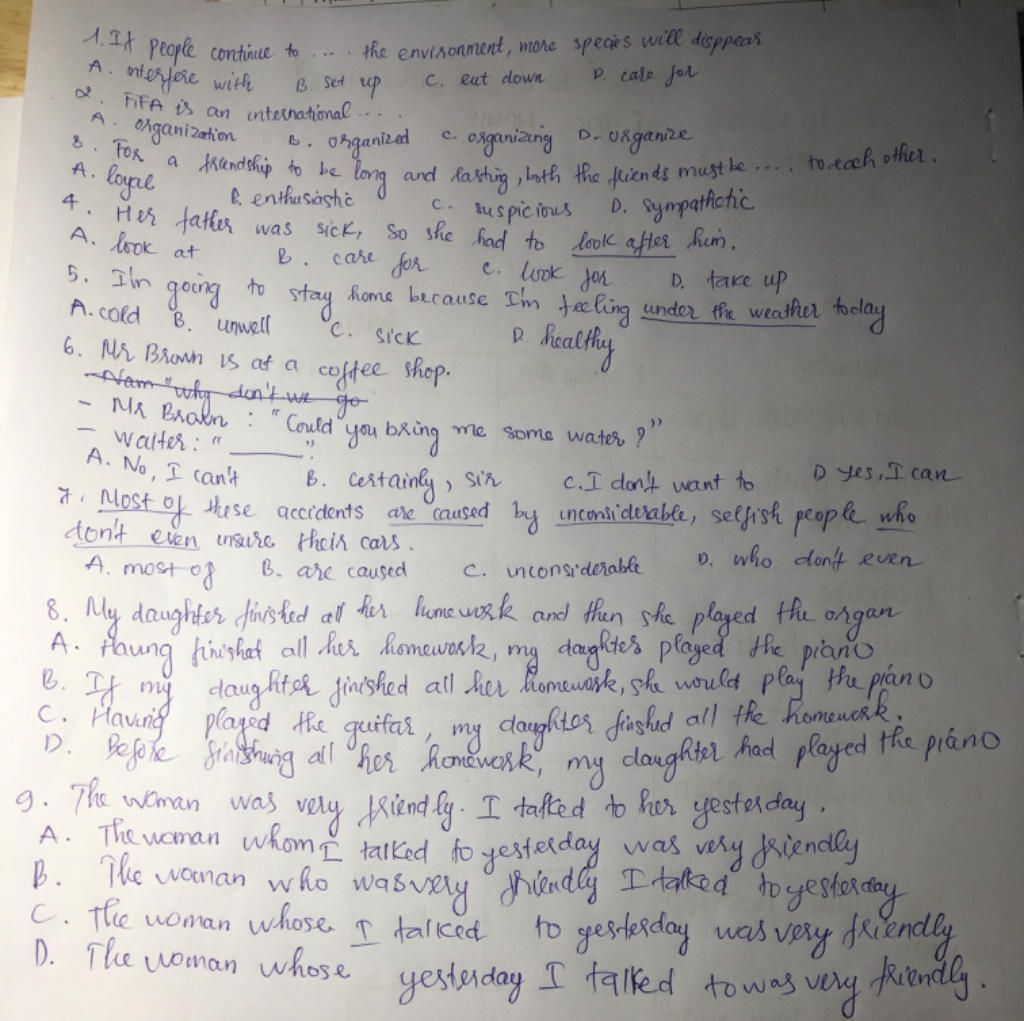 1. If people continue to .... the environment, more species will disppear
A. interfere with B. set up C. cut down D. care for
2. FiFA is an international ....
A. organization B. organized C. organizing D. organize
3. For a friendship to be long and lasting, both the friends must be .... to each other.
A. loyal B. enthusiastic C. suspicious D. sympathetic
4. Her father was sick, so she had to look after him.
A. look at B. care for C. look for D. take up
5. I'm going to stay home because I'm feeling under the weather today
A. cold B. unwell C. sick D. healthy
6. Mr Brown is at a coffee shop.
Nam "why don't we go
- Mr Brown : "Could you bring me some water ?"
- Walter : "______".
A. No, I can't B. certainly, sir C. I don't want to D yes, I can
7. Most of these accidents are caused by inconsiderable, selfish people who
don't even insure their cars.
A. most of B. are caused C. inconsiderable D. who don't even
8. My daughter finished all her homework and then she played the organ
A. Having finished all her homework, my daughter played the piano
B. If my daughter finished all her homework, she would play the piano
C. Having played the guitar, my daughter finshed all the homework.
D. Before finishing all her homework, my daughter had played the piano
9. The woman was very friendly. I talked to her yesterday.
A. The woman whom I talked to yesterday was very friendly
B. The woman who was very friendly I talked to yesterday
C. The woman whose I talked to yesterday was very friendly
D. The woman whose yesterday I talked to was very friendly.